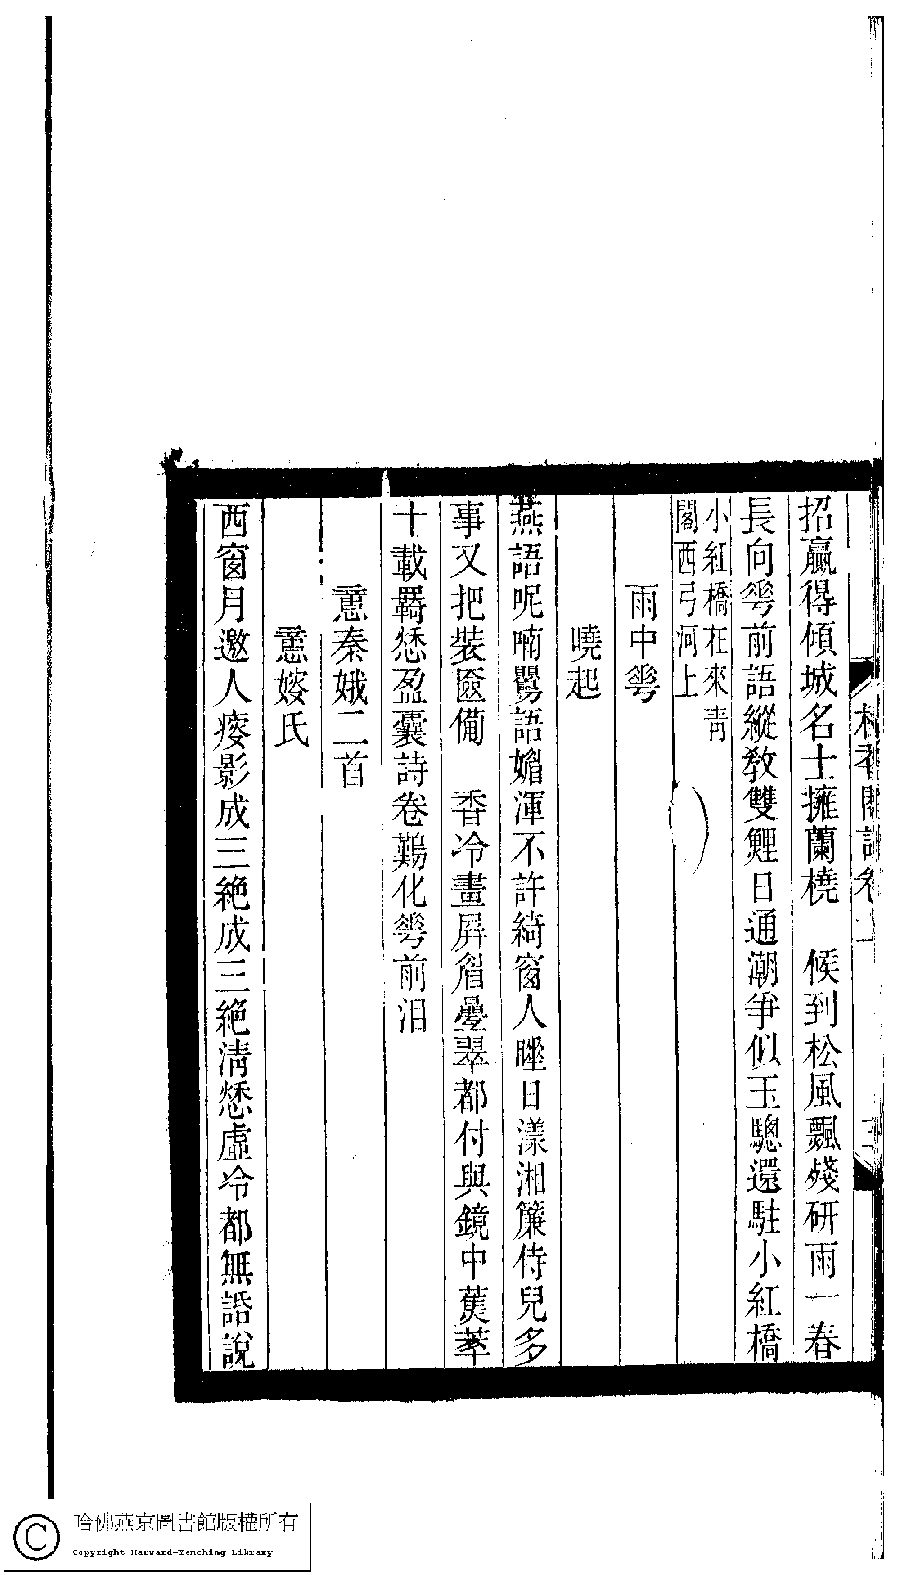 招贏得傾城名士擁蘭橈　候到松風飄殘研雨一春
長向等前語縱教雙鯉日通潮爭似玉驄還駐小紅橋
小紅橋在來青
閣西弓河上
雨中花
曉起
燕語呢喃鸎語媚渾不許綺窗人睡日漾湘簾侍兒多
事又把裝匳備　香冷畫屏眉疊翠都付與鏡中蕉萃
十載羇愁盈囊詩卷鷬化花前泪
憶秦娥二首
憶嫂氏
西窗月邀人瘦影成三絶成三絶淸愁虛冷都無語說
哈佛燕京圖書館版權所有
Copyright Harvard-Yenching Library